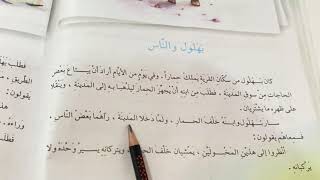 بَهْلُول وَالنَّاس
كانَ بَهْلُول مِنْ سُكّانِ القَرْيَةِ يَمْلِكُ حِماراً. وَفي يَوْمٍ مِنَ الأَيّامِ أَرادَ أَنْ يَبْتاعَ بَعْضَ
الحاجاتِ مِنْ سوقِ المَدينَةِ، فَطَلَبَ مِنِ ابْنِهِ أَنْ يُجَهِّزَ الحِمارَ لِيَذْهَبا بِهِ إِلى المَدينَةِ،
عَلى ظَهْرِهِ ما يَشْتَرِيانِ.
سارَ بَهْلُول وَابْنُهُ خَلْفَ الحِمارِ. وَلَمّا دَخَلا المَدينَةَ، رَآهُما بَعْضُ النّاسِ.
فَسَمِعاهُمْ يَقولونَ:
اُنْظُروا إِلى هذَيْنِ المَخْبولَيْنِ، يَمْشِيانِ خَلْفَ الحِمارِ، وَيَتْرُكانِهِ يَسيرُ وَحْدَهُ وَلا
يَرْكَبانِهِ.
فَطَلَبَ
الطَّريقِ،
يَقولونَ:
وَراءَهُ.
فَطَلَبَ
يَقولونَ: